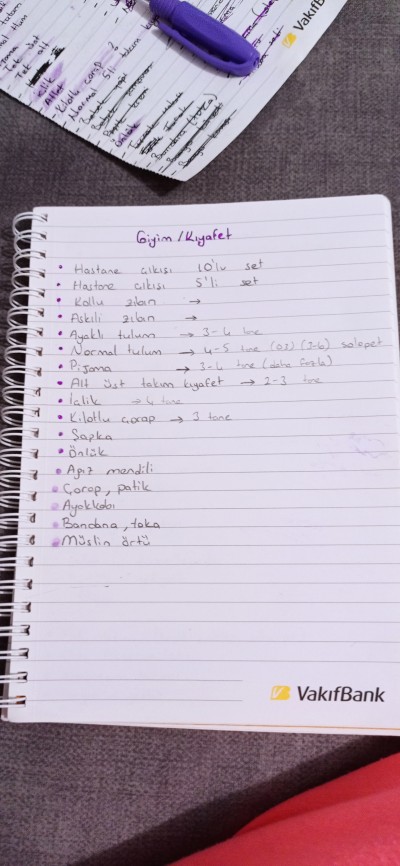 VakıfBank
Kilotlu çorap ?
Normal
Önlük
Giyim / Kıyafet
• Hastane çıkışı 10'lu set
• Hastane çıkışı 5'li set
• Kollu zıbın →
• Askılı zıbın →
• Ayaklı tulum → 3-4 tane
• Normal tulum → 4-5 tane (0,3) (3-6) salopet
• Pijama → 3-4 tane (daha fazla)
• Alt üst takım kıyafet → 2-3 tane
• İçlik → 4 tane
• Kilotlu çorap → 3 tane
• Şapka
• Önlük
• Ağız mendili
• Çorap, patik
• Ayakkabı
• Bandana, toka
• Müslin örtü
VakıfBank